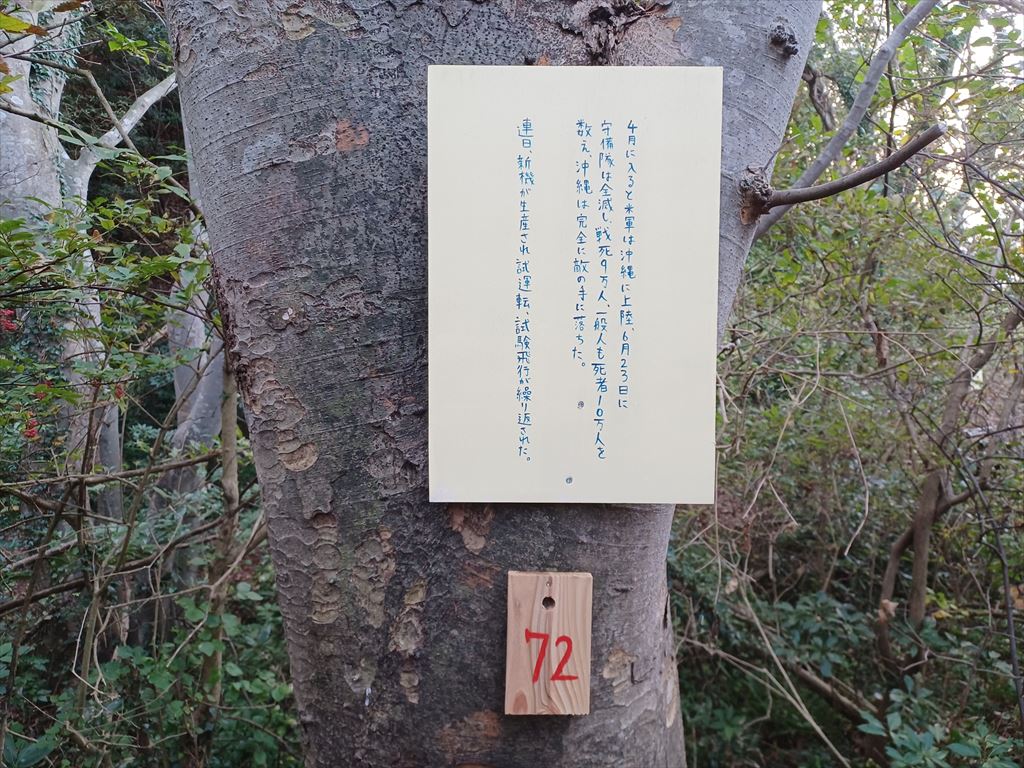 4月に入ると米軍は沖縄に上陸、6月23日に
守備隊は全滅し、戦死9万人、一般人も死者10万人を
数え、沖縄は完全に敵の手に落ちた。
連日、新機が生産され試運転、試験飛行が繰り返された。
72